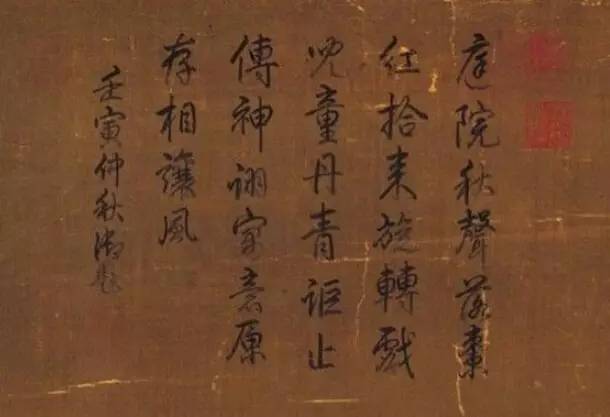 庭院秋聲落棗
紅拾来旋轉戲
兒童丹青詎止
傳神詡寓意原
存相讓風
壬寅仲秋御題